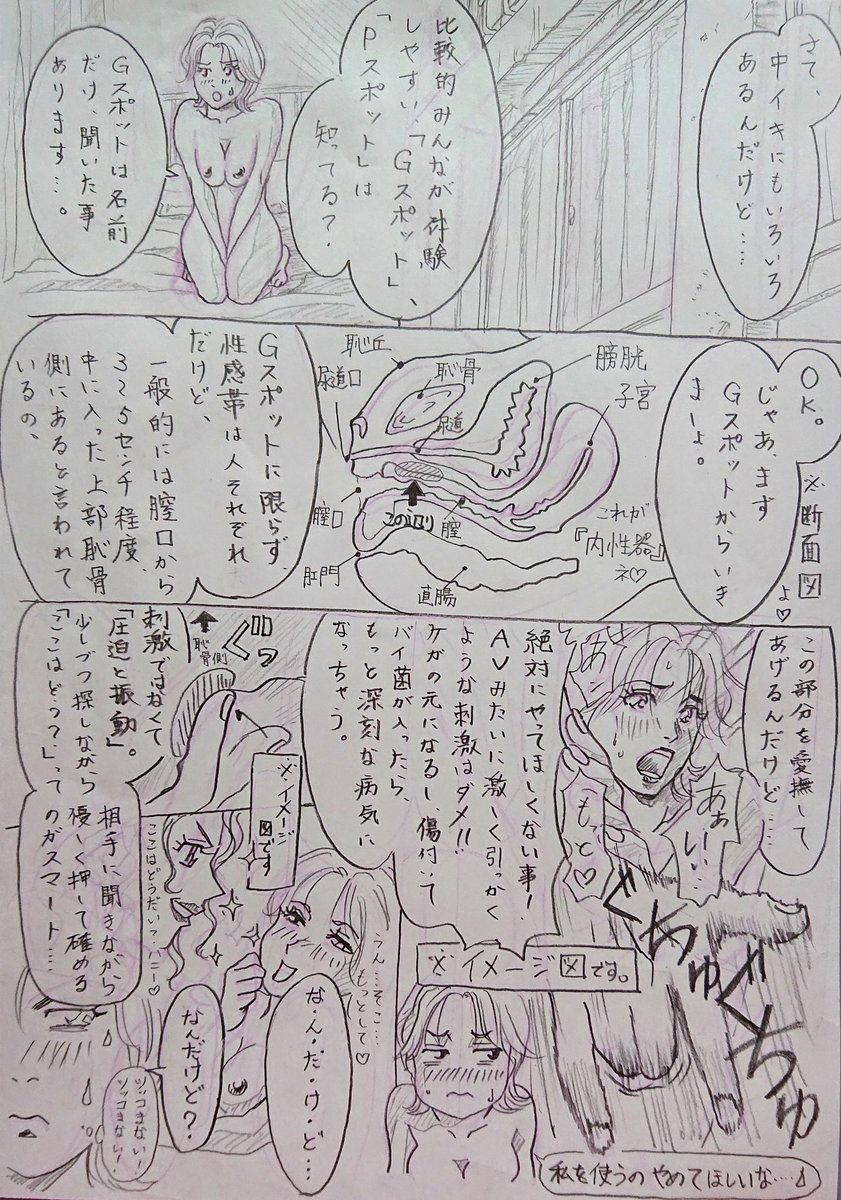 さて、
中イキにもいろいろ
あるんだけど……
比較的みんなが体験
しやすい、「Gスポット」、
「Pスポット」は
知ってる?
Gスポットは名前
だけ、聞いた事
あります…。
OK。
じゃあ、まず
Gスポットからいき
ましょ。
※断面図
よ♡
恥丘
尿道口
恥骨
尿道
膀胱
子宮
膣口
この辺り
膣
肛門
直腸
これが
『内性器』
ネ♡
Gスポットに限らず、
性感帯は人それぞれ
だけど、
一般的には膣口から
3~5センチ程度、
中に入った上部恥骨
側にあると言われて
いるの、
この部分を愛撫して
あげるんだけど……
あぁ
いい…
もっと♡
ぐちゅぐちゅ
絶対にやってほしくない事!
AVみたいに激しく引っかく
ような刺激はダメ!!
ケガの元になるし、傷付いて
バイ菌が入ったら、
もっと深刻な病気に
なっちゃう。
※イメージ図です。
恥骨側
グッ
※イメージ
図です
刺激ではなくて
「圧迫と振動」。
少しづつ探しながら
「ここはどう?」って
相手に聞きながら
優しく押して確める
のがスマート…
ここはどうだい?ハニー♡
うん…そこ…
もっとして♡
な・ん・だ・け・ど…
なんだけど?
ツッコまない!
ツッコまない!
私を使うのやめてほしいな……